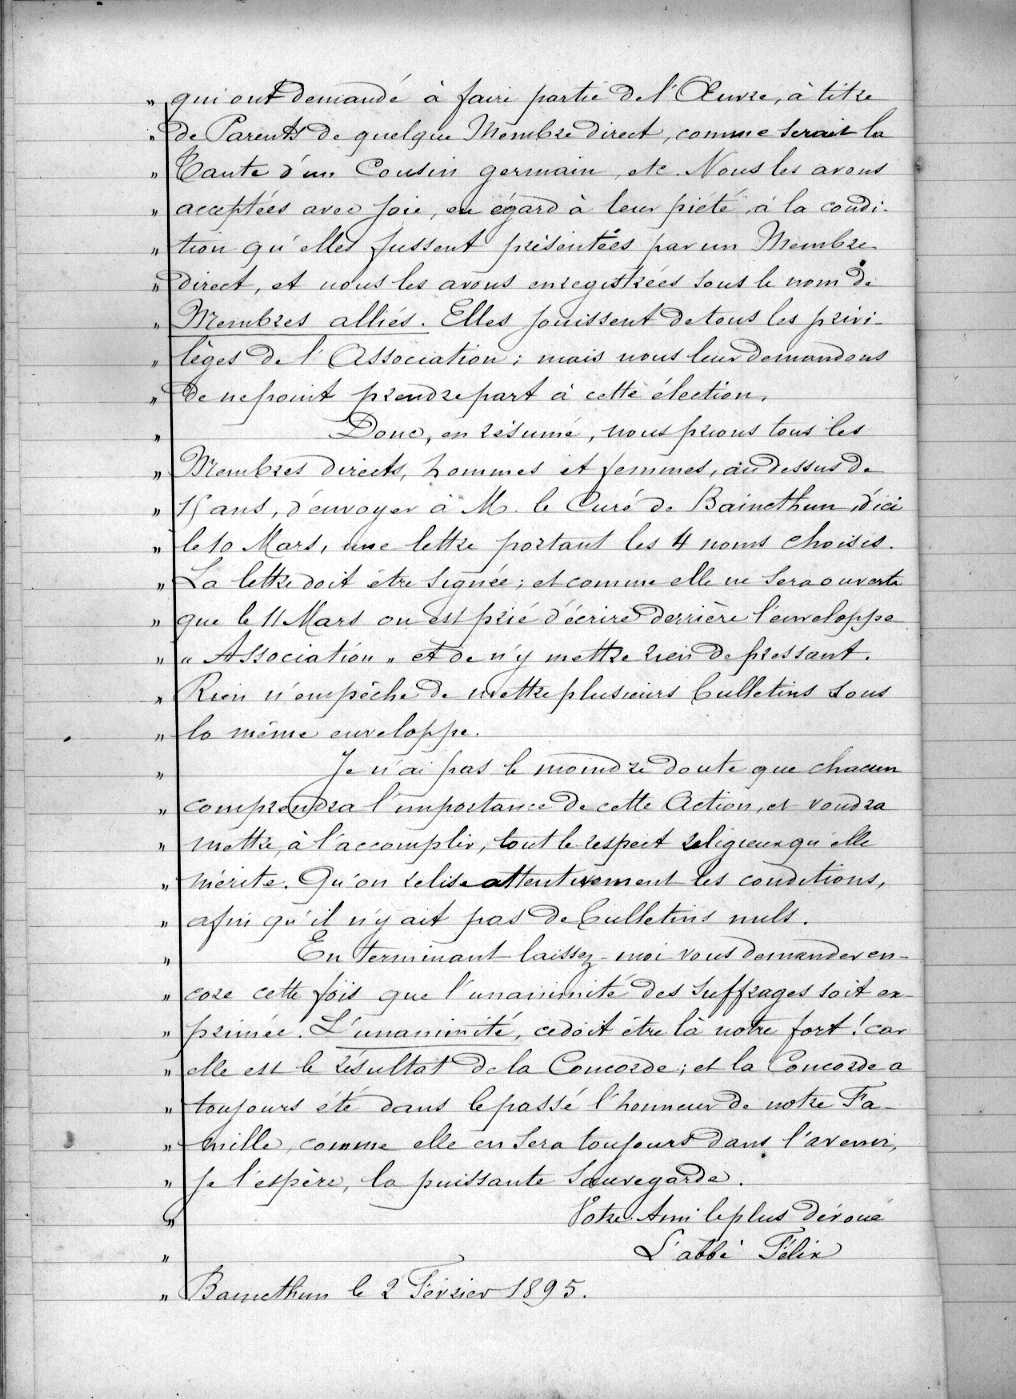 „ qui ont demandé à faire partie de l'Œuvre, à titre
„ de Parents de quelque Membre direct, comme serait la
„ Tante d'un Cousin germain, etc. Nous les avons
„ acceptées avec joie, eu égard à leur piété, à la condi-
„ tion qu'elles fussent présentées par un Membre
„ direct, et nous les avons enregistrées sous le nom de
„ Membres alliés. Elles jouissent de tous les privi-
„ lèges de l'Association ; mais nous leur demandons
„ de ne point prendre part à cette élection.
„ Donc, en résumé, nous prions tous les
„ Membres directs, hommes et femmes, au dessus de
„ 15 ans, d'envoyer à M. le Curé de Baincthun, d'ici
„ le 10 Mars, une lettre portant les 4 noms choisis.
„ La lettre doit être signée ; et comme elle ne sera ouverte
„ que le 11 Mars on est prié d'écrire derrière l'enveloppe
„ „ Association „ et de n'y mettre rien de pressant.
„ Rien n'empêche de mettre plusieurs bulletins sous
„ la même enveloppe.
„ Je n'ai pas le moindre doute que chacun
„ comprendra l'importance de cette Action, et voudra
„ mettre, à l'accomplir, tout le respect religieux qu'elle
„ mérite. Qu'on relise attentivement les conditions,
„ afin qu'il n'y ait pas de bulletins nuls.
„ En terminant laissez-moi vous demander en-
„ core cette fois que l'unanimité des suffrages soit ex-
„ primée. L'unanimité, ce doit être là notre fort ! car
„ elle est le résultat de la Concorde ; et la Concorde a
„ toujours été dans le passé l'honneur de notre Fa-
„ mille, comme elle en sera toujours dans l'avenir,
„ je l'espère, la puissante sauvegarde.
„ Votre Ami le plus dévoué
„ L'abbé Félix
„ Baincthun le 2 Février 1895.